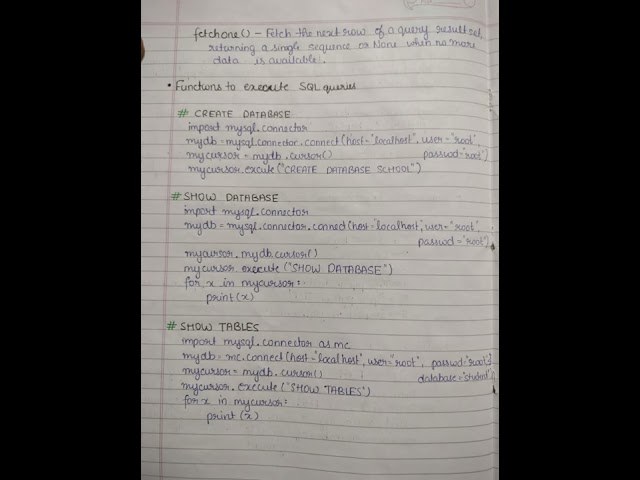 fetchone() – Fetch the next row of a query result set,
returning a single sequence or None when no more
data is available.
• Functions to execute SQL queries
# CREATE DATABASE
import mysql.connector
mydb = mysql.connector.connect(host="localhost", user="root"
mycursor = mydb.cursor() passwd="root")
mycursor.excute("CREATE DATABASE SCHOOL")
# SHOW DATABASE
import mysql.connector
mydb = mysql.connector.connect(host="localhost", user="root",
passwd="root")
mycursor.mydb.cursor()
mycursor.execute("SHOW DATABASE")
for x in mycursor:
print(x)
# SHOW TABLES
import mysql.connector as mc
mydb = mc.connect(host="localhost", user="root", passwd="root",
mycursor = mydb.cursor() database="student")
mycursor.execute("SHOW TABLES")
for x in mycursor:
print(x)